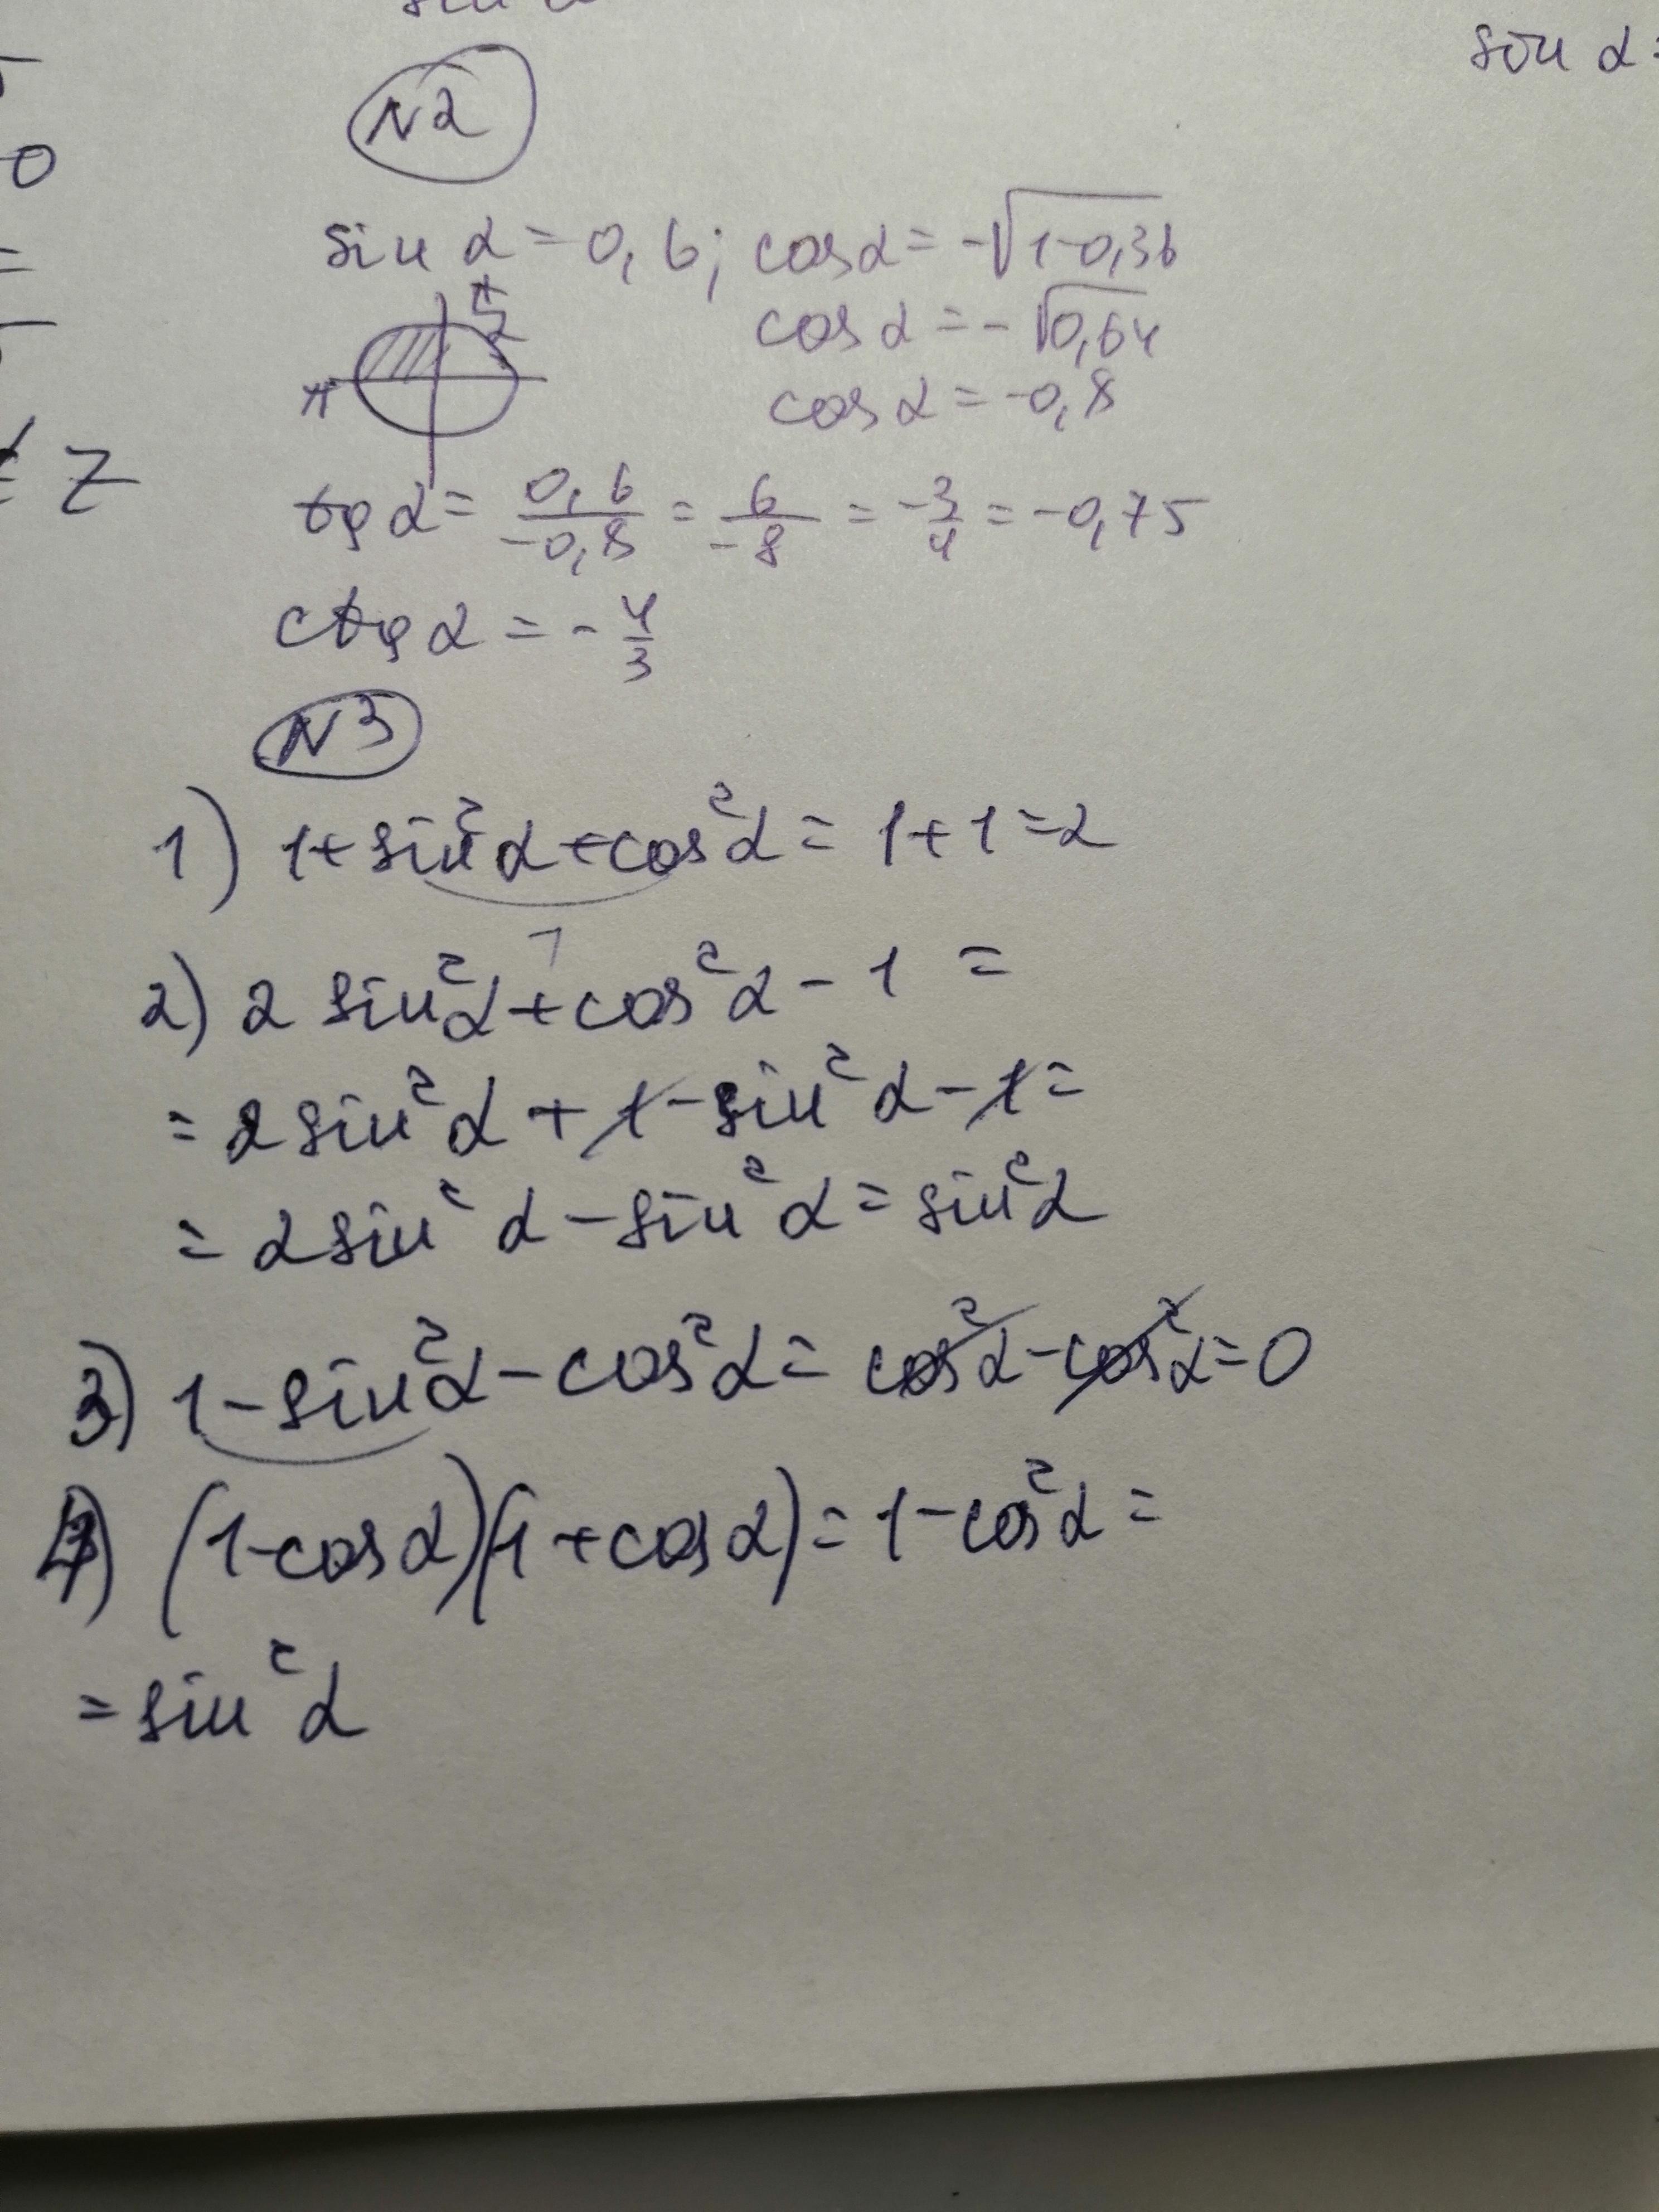 N2
sin α = 0,6; cos α = -√1-0,36
π/2
cos α = -√0,64
π
cos α = -0,8
tg α = 0,6/-0,8 = 6/-8 = -3/4 = -0,75
ctg α = -4/3
N3
1) 1+sin²α+cos²α = 1+1=2
1
2) 2 sin²α+cos²α - 1 =
= 2sin²α + 1 - sin²α - 1 =
= 2sin²α - sin²α = sin²α
3) 1-sin²α-cos²α = cos²α-cos²α=0
4) (1-cos α)(1+cos α) = 1-cos²α =
= sin²α
sin α =
0
=
Z